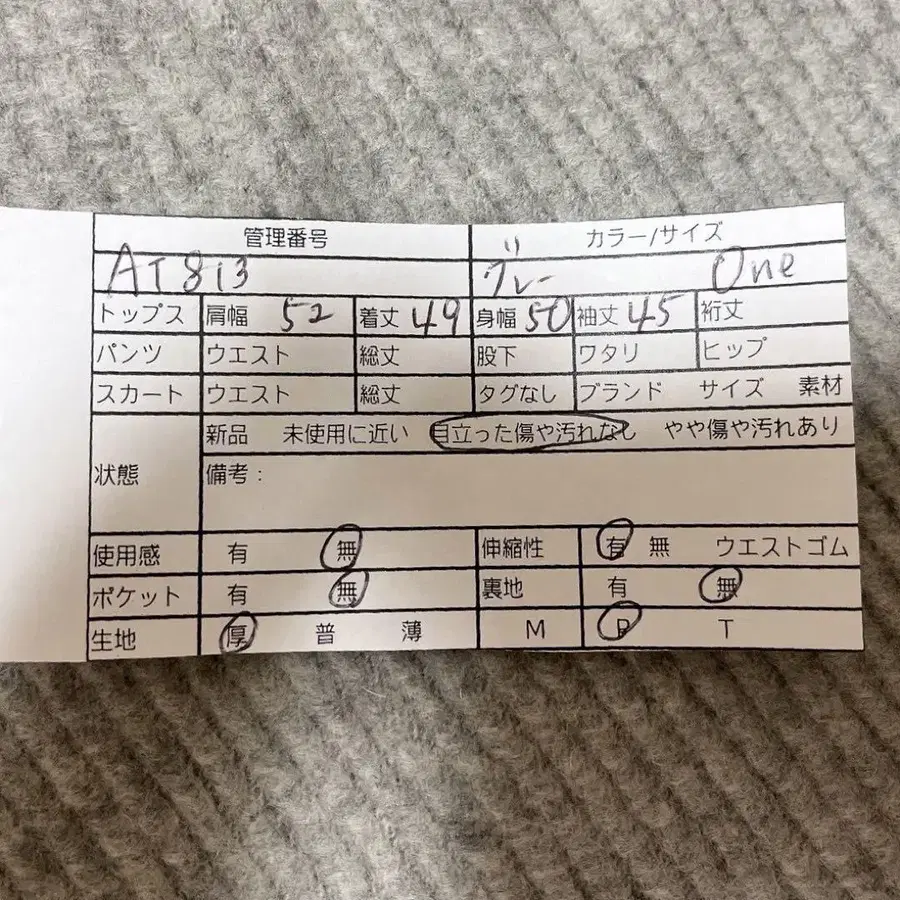 管理番号 カラー/サイズ
AT813 グレー One
トップス 肩幅 52 着丈 49 身幅 50 袖丈 45 裄丈
パンツ ウエスト 総丈 股下 ワタリ ヒップ
スカート ウエスト 総丈 タグなし ブランド サイズ 素材
状態 新品 未使用に近い 目立った傷や汚れなし やや傷や汚れあり
備考:
使用感 有 無 伸縮性 有 無 ウエストゴム
ポケット 有 無 裏地 有 無
生地 厚 普 薄 M P T